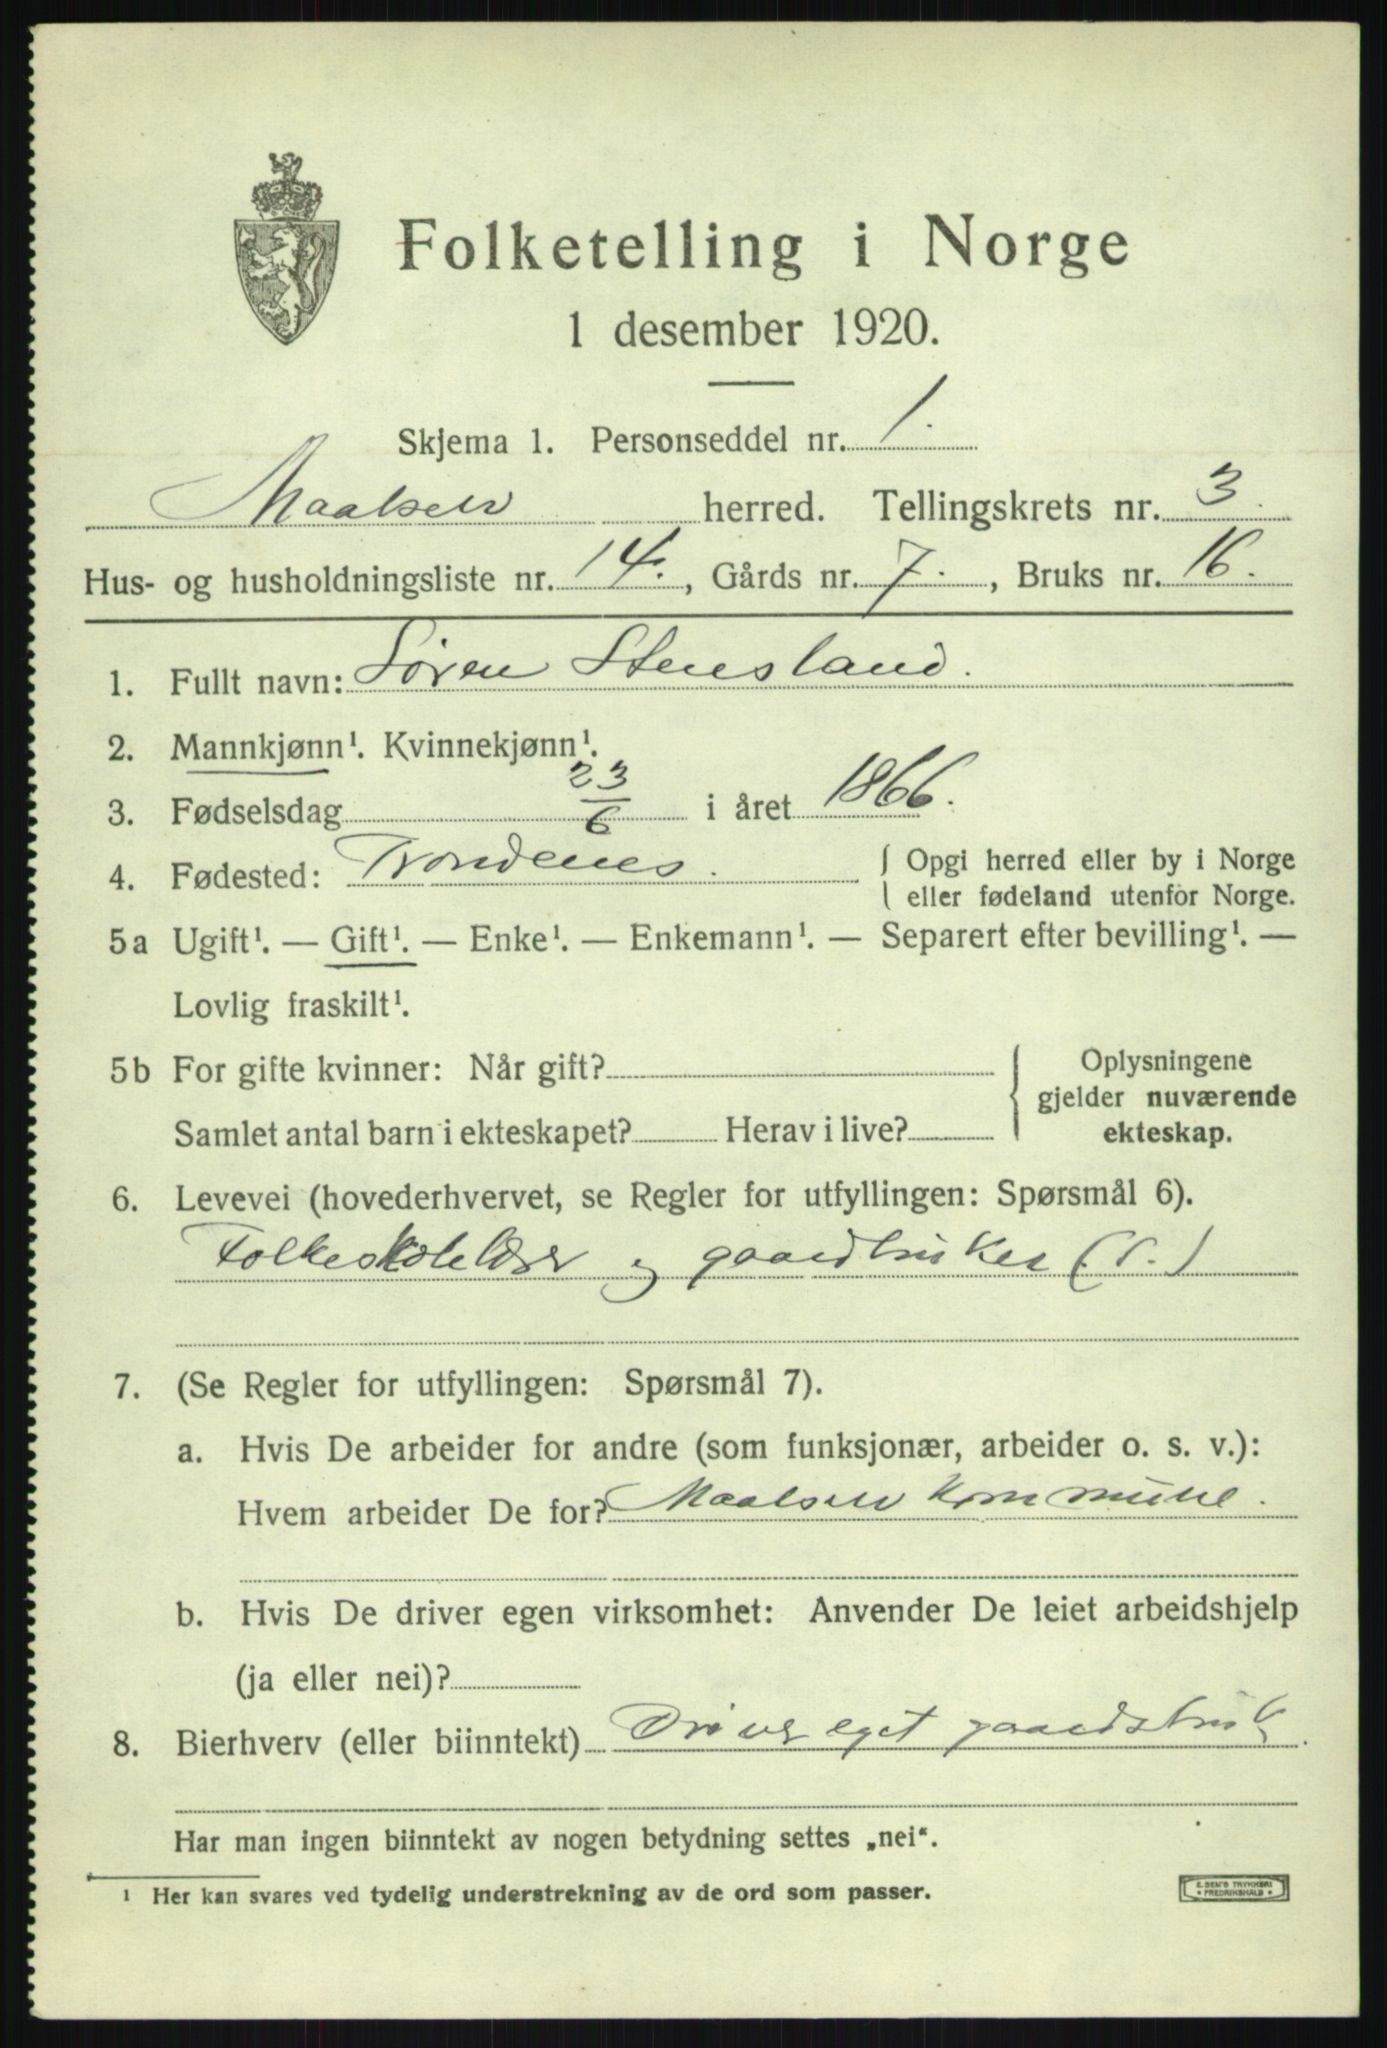 Folketelling i Norge
1 desember 1920.
Skjema 1. Personseddel nr. 1.
Maalselv herred. Tellingskrets nr. 3.
Hus- og husholdningsliste nr. 14., Gårds nr. 7., Bruks nr. 16.
1. Fullt navn: Søren Stensland.
2. Mannkjønn¹. Kvinnekjønn¹.
3. Fødselsdag 23/6 i året 1866.
4. Fødested: Trondenes. { Opgi herred eller by i Norge
eller fødeland utenfor Norge.
5a Ugift¹. — Gift¹. — Enke¹. — Enkemann¹. — Separert efter bevilling¹. —
Lovlig fraskilt¹.
5b For gifte kvinner: Når gift? { Oplysningene
gjelder nuværende
Samlet antal barn i ekteskapet? Herav i live? ekteskap.
6. Levevei (hovederhvervet, se Regler for utfyllingen: Spørsmål 6).
Folkeskolelærer og gaardbruker (S.)
7. (Se Regler for utfyllingen: Spørsmål 7).
a. Hvis De arbeider for andre (som funksjonær, arbeider o. s. v.):
Hvem arbeider De for? Maalselv Kommune.
b. Hvis De driver egen virksomhet: Anvender De leiet arbeidshjelp
(ja eller nei)?
8. Bierhverv (eller biinntekt) Driver eget gaardsbruk
Har man ingen biinntekt av nogen betydning settes „nei“.
¹ Her kan svares ved tydelig understrekning av de ord som passer.
E. SEM'S TRYKKERI
* FREDRIKSHALD *